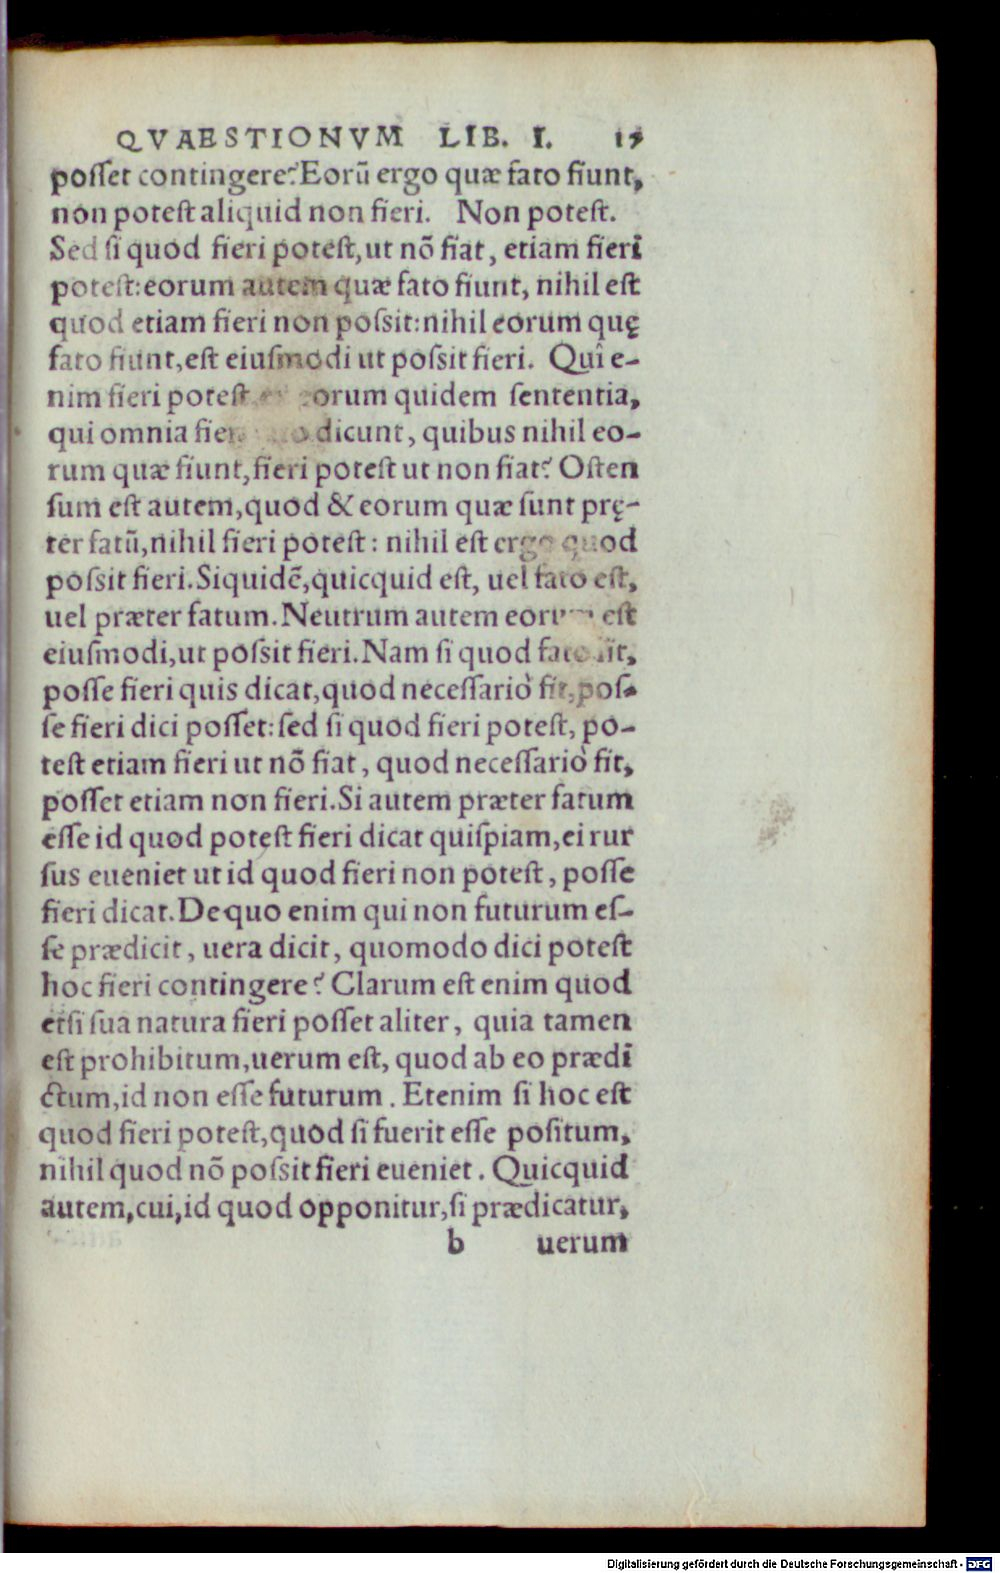 QVAESTIONVM LIB. I. 17
posset contingere? Eorũ ergo quæ fato fiunt,
non potest aliquid non fieri. Non potest.
Sed si quod fieri potest, ut nõ fiat, etiam fieri
potest: eorum autem quæ fato fiunt, nihil est
quod etiam fieri non possit: nihil eorum quę
fato fiunt, est eiusmodi ut possit fieri. Quî e-
nim fieri potest eorum quidem sententia,
qui omnia dicunt, quibus nihil eo-
rum quæ fiunt, fieri potest ut non fiat? Osten
sum est autem, quod & eorum quæ sunt prę-
ter fatũ, nihil fieri potest: nihil est ergo quod
possit fieri. Siquidẽ, quicquid est, uel fato est,
uel præter fatum. Neutrum autem eorum est
eiusmodi, ut possit fieri. Nam si quod fato sit,
posse fieri quis dicat, quod necessariò fit, pos-
se fieri dici posset: sed si quod fieri potest, po-
test etiam fieri ut nõ fiat, quod necessariò fit,
posset etiam non fieri. Si autem præter fatum
esse id quod potest fieri dicat quispiam, ei rur
sus eueniet ut id quod fieri non potest, posse
fieri dicat. De quo enim qui non futurum es-
se prædicit, uera dicit, quomodo dici potest
hoc fieri contingere? Clarum est enim quod
etsi sua natura fieri posset aliter, quia tamen
est prohibitum, uerum est, quod ab eo prædi
ctum, id non esse futurum. Etenim si hoc est
quod fieri potest, quod si fuerit esse positum,
nihil quod nõ possit fieri eueniet. Quicquid
autem, cui, id quod opponitur, si prædicatur,
b uerum
Digitalisierung gefördert durch die Deutsche Forschungsgemeinschaft - DFG